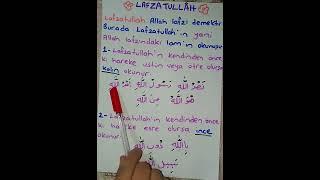 LAFZATULLÂH
Lafzatullah Allah lafzı demektir
Burada Lafzatullah'ın yani
Allah lafzındaki lam'ın okunuşu
1- Lafzatullah'ın kendinden önce
ki hareke üstün veya ötre olursa
kalın okunur.
نَصْرُ اللّٰهِ رَسُولُ اللّٰهِ
هُوَ اللّٰهُ مِنَ اللّٰهِ
2- Lafzatullah'ın kendinden önce
ki ha eke esre olursa ince
okunur.
بِاللّٰهِ دُونِ اللّٰهِ
سَبِيلِ اللّٰهِ